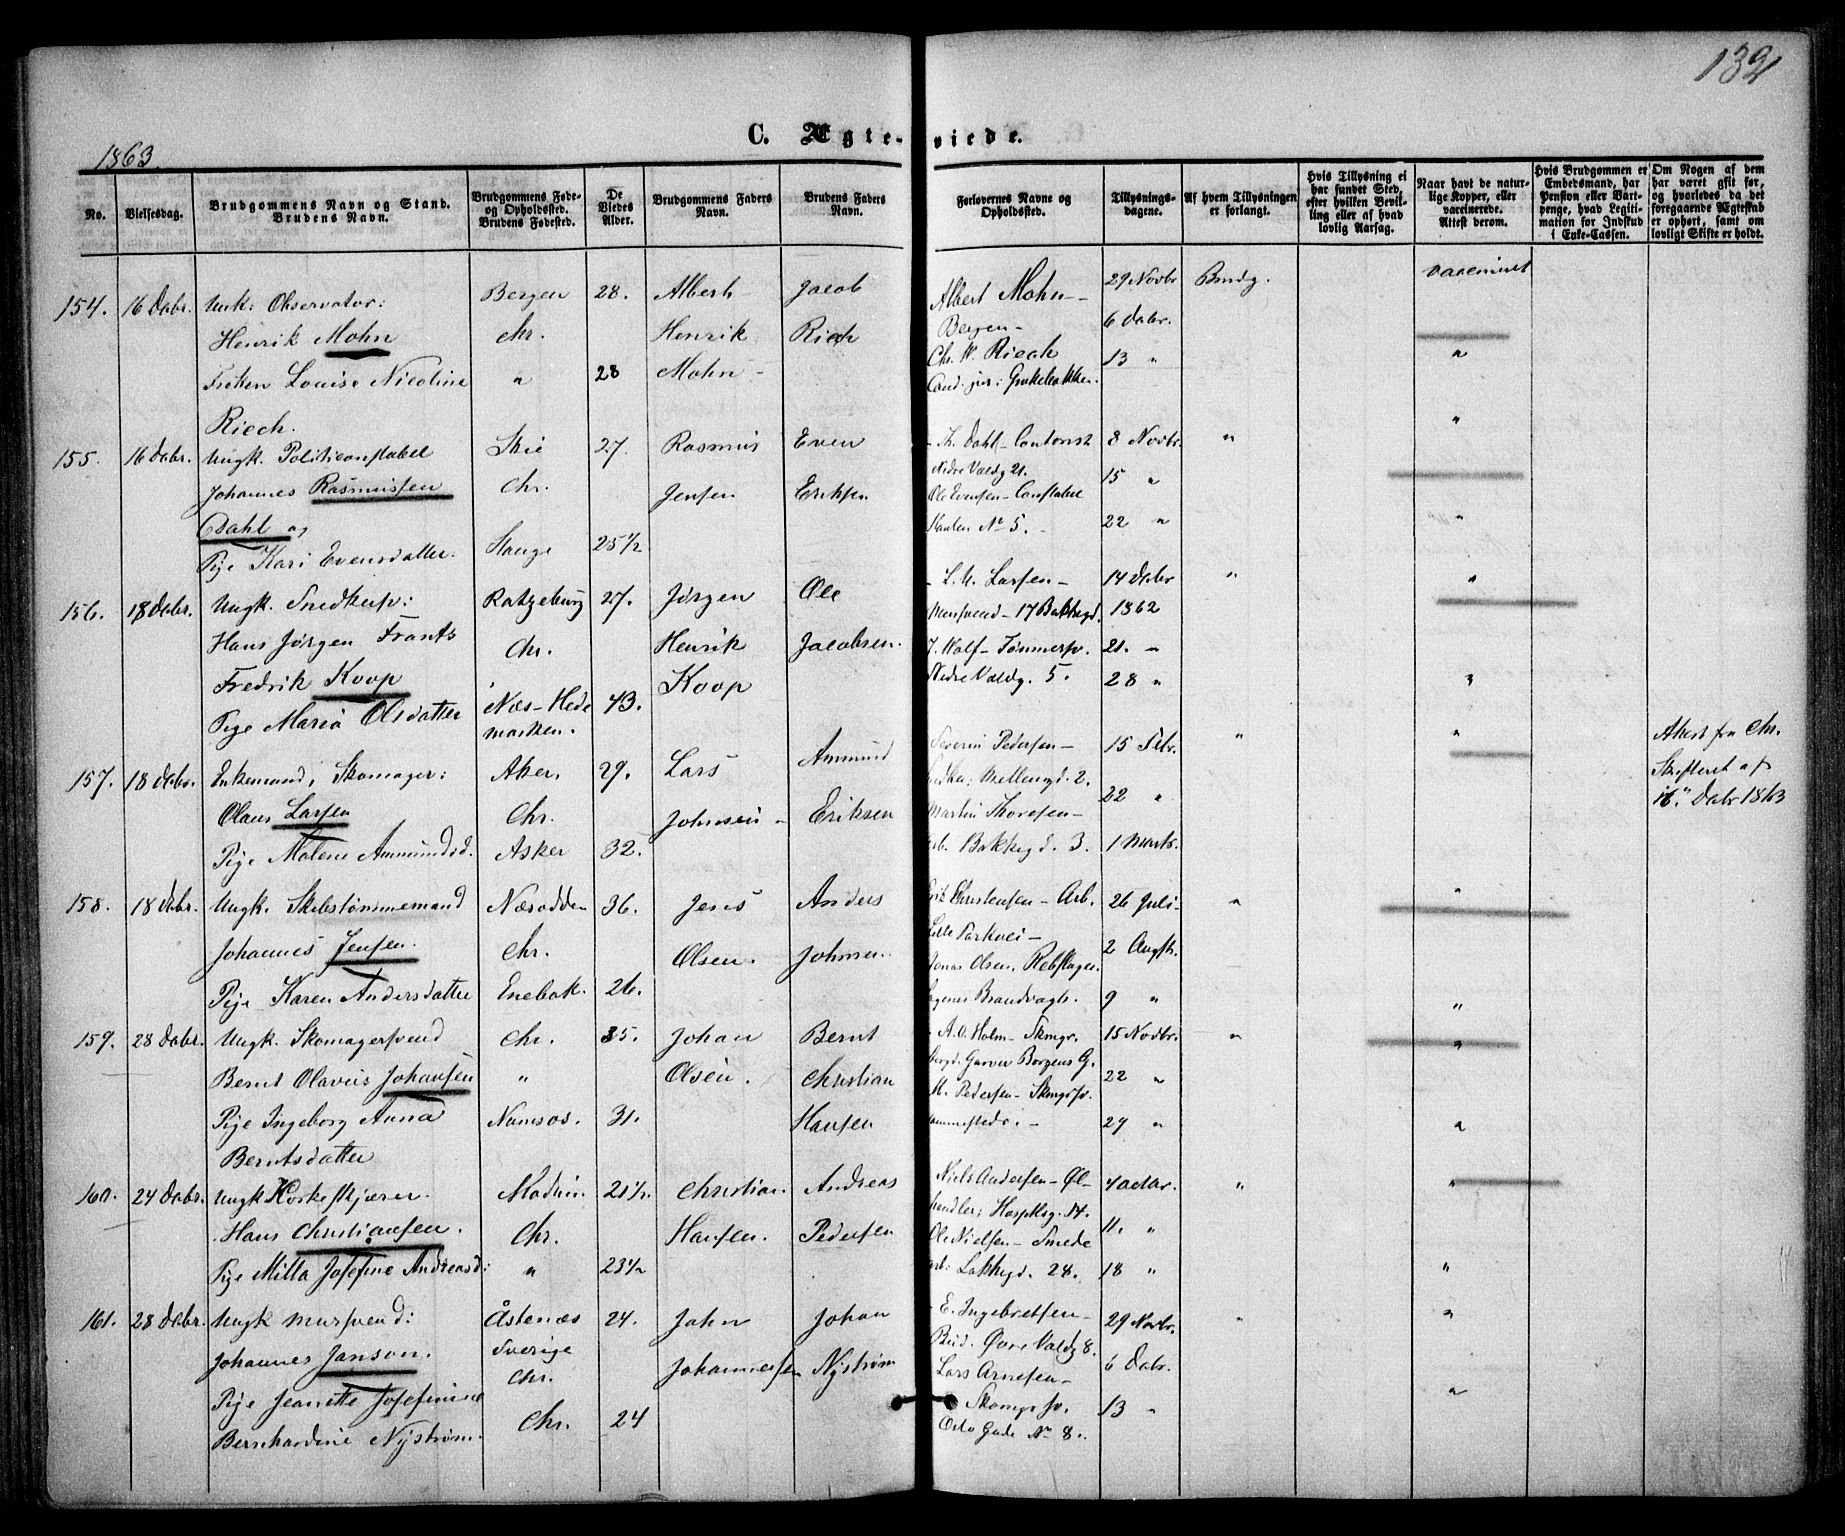 132
C. Ægte-viede.
1863.
No.
Vielsesdag.
Brudgommens Navn og Stand.
Brudens Navn.
Brudgommens Føde-
og Opholdssted.
Brudens Fødested.
De
Viedes
Alder.
Brudgommens Faders
Navn.
Brudens Faders
Navn.
Forlovernes Navne og
Opholdssted.
Tillysnings-
dagene.
Af hvem Tillysningen
er forlangt.
Hvis Tillysning ei
har fundet Sted,
efter hvilken Bevil-
ling eller af hvad
lovlig Aarsag.
Naar havt de natur-
lige Kopper, eller
vaccinerede.
Attest derom.
Hvis Brudgommen er
Embedsmand, har
Pension eller Vart-
penge, hvad Legiti-
mation for Indskud
i Enke-Cassen.
Om Nogen af dem
har været gift før,
og hvorledes da det
foregaaende Ægteskab
er ophørt, samt om
lovligt Skifte er holdt.
154. 16 Dcbr. Ungk: Observator: Bergen 28. Albert Jacob Albert Mohn- 29 Novbr Brudg. vaccineret
Henrik Mohn Chr. Henrik Riech Bergen- 6 Dcbr.
Frøken Louise Nicoline " 28 Mohn- Chr. W. Riech 13 " "
Riech. Cand. jur: Grækebakken. "
155. 16 Dcbr. Ungk. Politiconstabel Skie 27. Rasmus Even Dahl- 8 Novbr. "
Johannes Rasmussen Chr. Jensen Eriksen Nedre Voldg 21. 15 "
Dahl og Ole Evensen- Constabel 22 " "
Pige Kari Evensdatter. Stange 25 1/2 No 5.
156. 18 Dcbr. Ungk. Snedkersv: Ratzeburg 27. Jørgen Ole L. M. Larsen- 14 Dcbr " "
Hans Jørgen Frants Chr. Henrik Jacobsen. Mursvend- 17 Bakkegd. 1862
Fredrik Koop Koop J. Wolf- Tømmersv. 21. "
Pige Maria Olsdatter Næs- Hede 43. Nedre Voldg. 5. 28 " "
marken.
157. 18 Dcbr. Enkemand, Skomager: Aker, 29. Lars Ammund Severin Pedersen- 15 Febr. " " Attest fra Chr.
Olaus Larsen Chr. Johnsen- Eriksen Mellemgd. 2. 22 " Skifteret af
Pige Malene Ammundsd. Asker 32. Martin Thoresen- 16. Dcbr 1863
Bakkegd. 3. 1 Marts.
158. 18 Dcbr. Ungk. Skibstømmermand Næsodden 36. Jens Anders Christensen- Arb. 26 Juli- " "
Johannes Jensen. Chr. Olsen. Johnsen. Lille 2 Augst.
Pige Karen Andersdatter Enebak. 26. Jonas Olsen, Rebslager. 9 " "
Sagenes Brandvagt.
159. 28 Dcbr. Ungk. Skomagersvend Chr. 35. Johan Bernt A. O. Holm- Skmgr. 15 Novbr. " "
Bernt Olavus Johansen " Olsen. Christian Garver Borgens G. 22 "
Pige Ingeborg Anna Namsos. 31. Hansen M. Pedersen- Skmgrsv. 29 " "
Berntsdatter
160. 24 Dcbr. Ungk Korkeskjærer. Modum 21 1/2 Christian. Andreas Niels Andersen- Øl- 4 Octbr. " "
Hans Christiansen. Chr. Hansen. Pedersen handler; Hospitsg. 14. 11. "
Pige Milla Josefine Andreasd: " 23 1/2 Ole Nielsen- Smede 18 " "
arb: Lakkegd. 28.
161. 28 Dcbr. Ungk Mursvend: Åstenæs 24. John Johan E. Ingebretsen- 29 Novbr. " "
Johannes Janson. Sverige Johannessen Nystrøm Bud. Øvre Voldg 8. 6 Dcbr.
Pige Jeanette Josefinne Chr. Lars Arnesen- "
Bernhardine Nystrøm. Chr. 24 Skomgr sv. 13 "
Oslo Gade No 8.